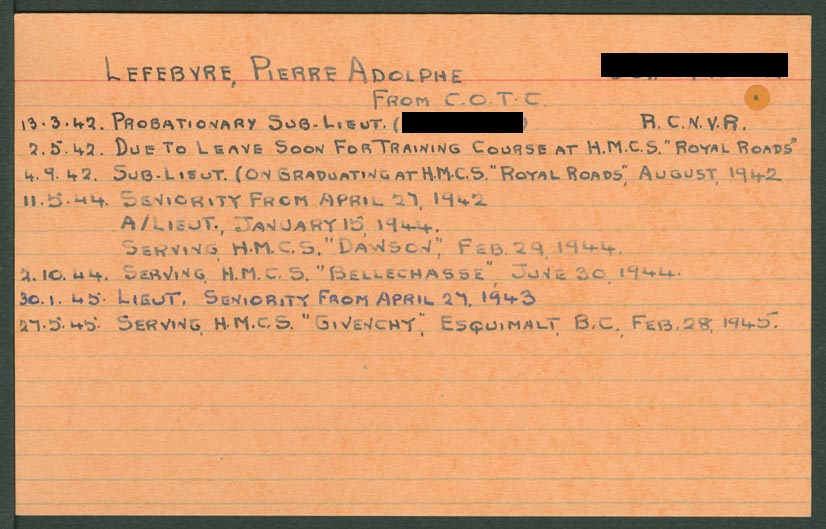 LEFEBVRE, PIERRE ADOLPHE
FROM C.O.T.C.
13.3.42. PROBATIONARY SUB-LIEUT. ( ) R.C.N.V.R.
2.5.42. DUE TO LEAVE SOON FOR TRAINING COURSE AT H.M.C.S. "ROYAL ROADS"
4.9.42. SUB-LIEUT. (ON GRADUATING AT H.M.C.S. "ROYAL ROADS", AUGUST, 1942
11.5.44. SENIORITY FROM APRIL 27, 1942
A/LIEUT., JANUARY 15, 1944.
SERVING, H.M.C.S. "DAWSON", FEB. 29, 1944.
2.10.44. SERVING, H.M.C.S. "BELLECHASSE", JUNE 30, 1944.
30.1.45. LIEUT. SENIORITY FROM APRIL 27, 1943
27.5.45. SERVING, H.M.C.S. "GIVENCHY", ESQUIMALT, B.C., FEB. 28, 1945.